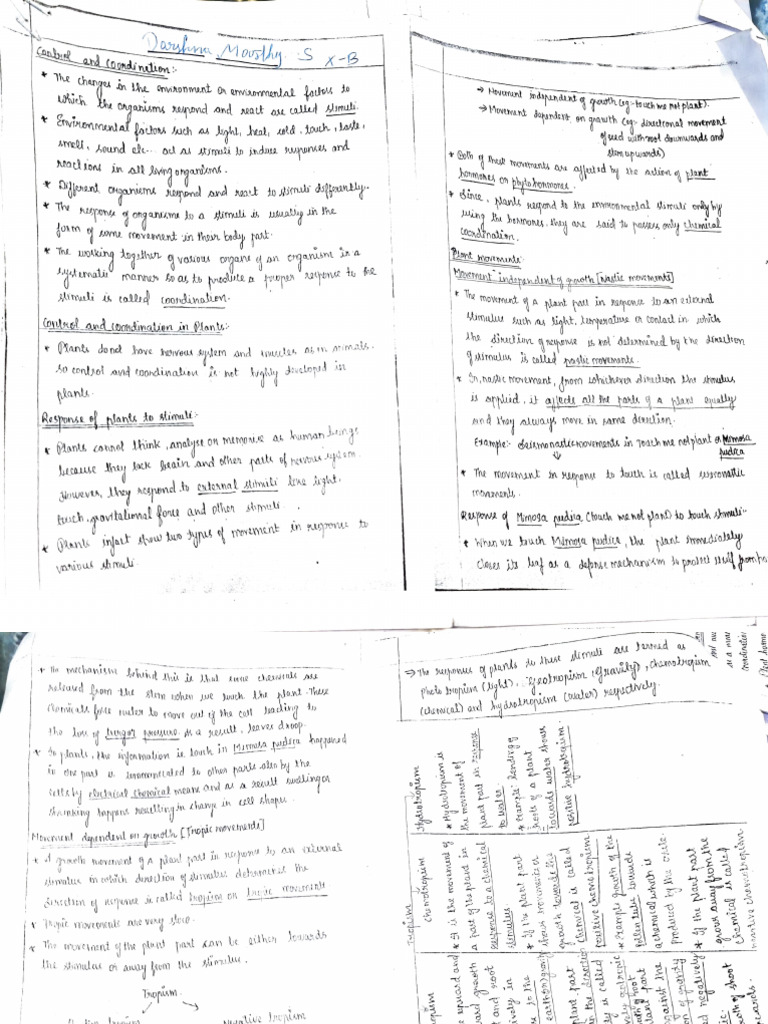 Darshna Moorthy. S X-B
Control and Coordination:-
* The changes in the environment or environmental factors to
which the organisms respond and react are called stimuli.
* Environmental factors such as light, heat, cold, touch, taste,
smell, sound etc.. act as stimuli to induce responses and
reactions in all living organisms.
* Different organisms respond and react to stimuli differently.
* The response of organisms to a stimuli is usually in the
form of some movement in their body part.
* The working together of various organs of an organism in a
systematic manner so as to produce a proper response to the
stimuli is called coordination.
Control and coordination in Plants:-
* Plants donot have nervous system and muscles as in animals.
so control and coordination is not highly developed in
plants.
Response of plants to stimuli:-
* Plants cannot think, analyse or memorise as human beings
because they lack brain and other parts of nervous system.
However, they respond to external stimuli like light,
touch, gravitational force and other stimuli.
* Plants infact show two types of movement in response to
various stimuli.
→ Movement independent of growth (eg:- touch me not plant).
→ Movement dependent on growth (eg:- directional movement
of seed with root downwards and
stem upwards)
* Both of these movements are affected by the action of plant
hormones or phytohormones.
* Since, plants respond to the environmental stimuli only by
using the hormones, they are said to possess only chemical
coordination.
Plant movements:
Movement independent of growth [Nastic movements]
* The movement of a plant part in response to an external
stimulus such as light, temperature or contact in which
the direction of response is not determined by the direction
of stimulus is called nastic movements.
* In, nastic movement, from whichever direction the stimulus
is applied, it affects all the parts of a plant equally
and they always move in same direction.
Example:- Seismonastic movements in Touch me not plant or Mimosa
pudica
* The movement in response to touch is called seismonastic
movements.
Response of Mimosa pudica (touch me not plant) to touch stimuli:-
* When we touch Mimosa pudica, the plant immediately
closes its leaf as a defense mechanism to protect itself from
* The mechanism behind this is that some chemicals are
released from the stem when we touch the plant. These
chemicals force water to move out of the cell leading to
the loss of turgor pressure. As a result, leaves droop.
* In plants, the information is touch in Mimosa pudica happened
in one part is communicated to other parts also by the
cells by electrical chemical means and as a result swelling or
shrinking happens resulting in change in cell shape.
Movement dependent on growth [Tropic movements]
* A growth movement of a plant part in response to an external
stimulus in which direction of stimulus determines the
direction of response is called tropism or tropic movements
* Tropic movements are very slow.
* The movement of the plant part can be either towards
the stimulus or away from the stimulus.
Tropism
Negative tropism
→ The responses of plants to these stimuli are termed as
phototropism (light), Geotropism (gravity), chemotropism
(chemical) and hydrotropism (water) respectively.
Hydrotropism
* Hydrotropism is
the movement of
plant part in response
to water.
* Example: bending of
roots of a plant
towards water shows
positive hydrotropism.
Tropism
Chemotropism
* It is the movement of
a part of the plant in
response to a chemical
stimulus
* If the plant part
shows movement or
growth towards the
chemical is called
positive chemotropism
* Example growth of the
pollen tube towards
a chemical which is
produced by the ovule.
* If the plant part
grows away from the
chemical is called
negative chemotropism